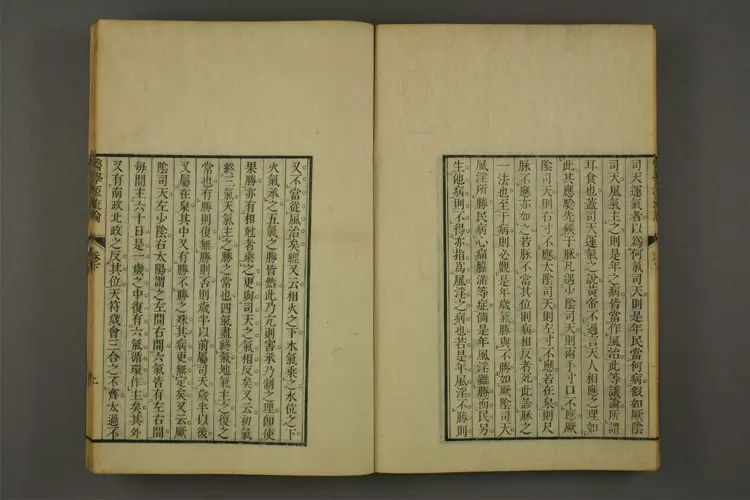 司天運氣者以爲何氣司天則是年民當何病假如厥陰
司天風氣主之則是年之病皆當作風治此等議論所謂
耳食也蓋司天運氣之說黃帝不過言天人相應之理如
此其應驗先候于脉凡遇少陰司天則兩手寸口不應厥
陰司天則右寸不應太陰司天則左寸不應若在泉則尺
脉不應亦如之若脉不當其位則病相反者死此診脉之
一法也至于病則必觀是年歲氣勝與不勝如厥陰司天
風淫所勝民病心痛脇滿等症倘是年風淫雖勝而民另
生他病則不得亦指爲風淫之病也若是年風淫不勝則
又不當從風治矣經又云相火之下水氣乘之水位之下
火氣承之五氣之勝皆然此乃亢則害承乃制之理卽使
果勝亦有相剋者乘之更與司天之氣相反矣又云初氣
終三氣天氣主之勝之常也四氣盡終氣地氣主之復之
常也有勝則復無勝則否則歲半以前屬司天歲半以後
又屬在泉其中又有勝不勝之殊其病更無定矣又云厥
陰司天左少陰右太陽謂之左間右間六氣皆有左右間
每間主六十日是一歲之中復有六氣循環作主矣其外
又有南政北政之反其位天符歲會三合之不齊太過不
醫學源流論
卷下